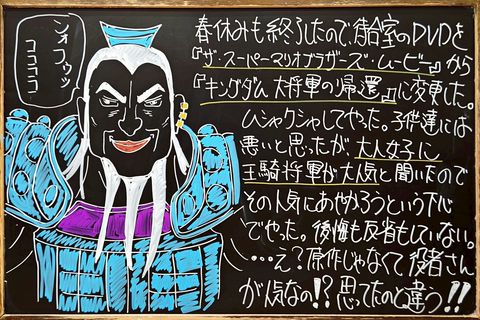 ンフゥッ
ココココ
春休みも終了したので、待合室のDVDを
『ザ・スーパーマリオブラザーズ・ムービー』から
『キングダム 大将軍の帰還』に変更した。
ムシャクシャしてやった。子供達には
悪いと思ったが大人女子に
王騎将軍が大人気と聞いたので
その人気にあやかろうという下心
でやった。後悔も反省もしていない。
…え?原作じゃなくて役者さん
が人気なの!?思ってたのと違う!!